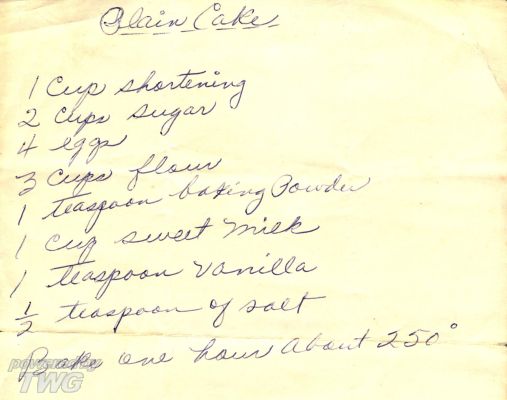 Plain Cake
1 Cup shortening
2 Cups sugar
4 eggs
3 Cups flour
1 teaspoon baking Powder
1 Cup sweet Milk
1 teaspoon Vanilla
1/2 teaspoon of salt
Bake one hour About 250°
powered by
TWG